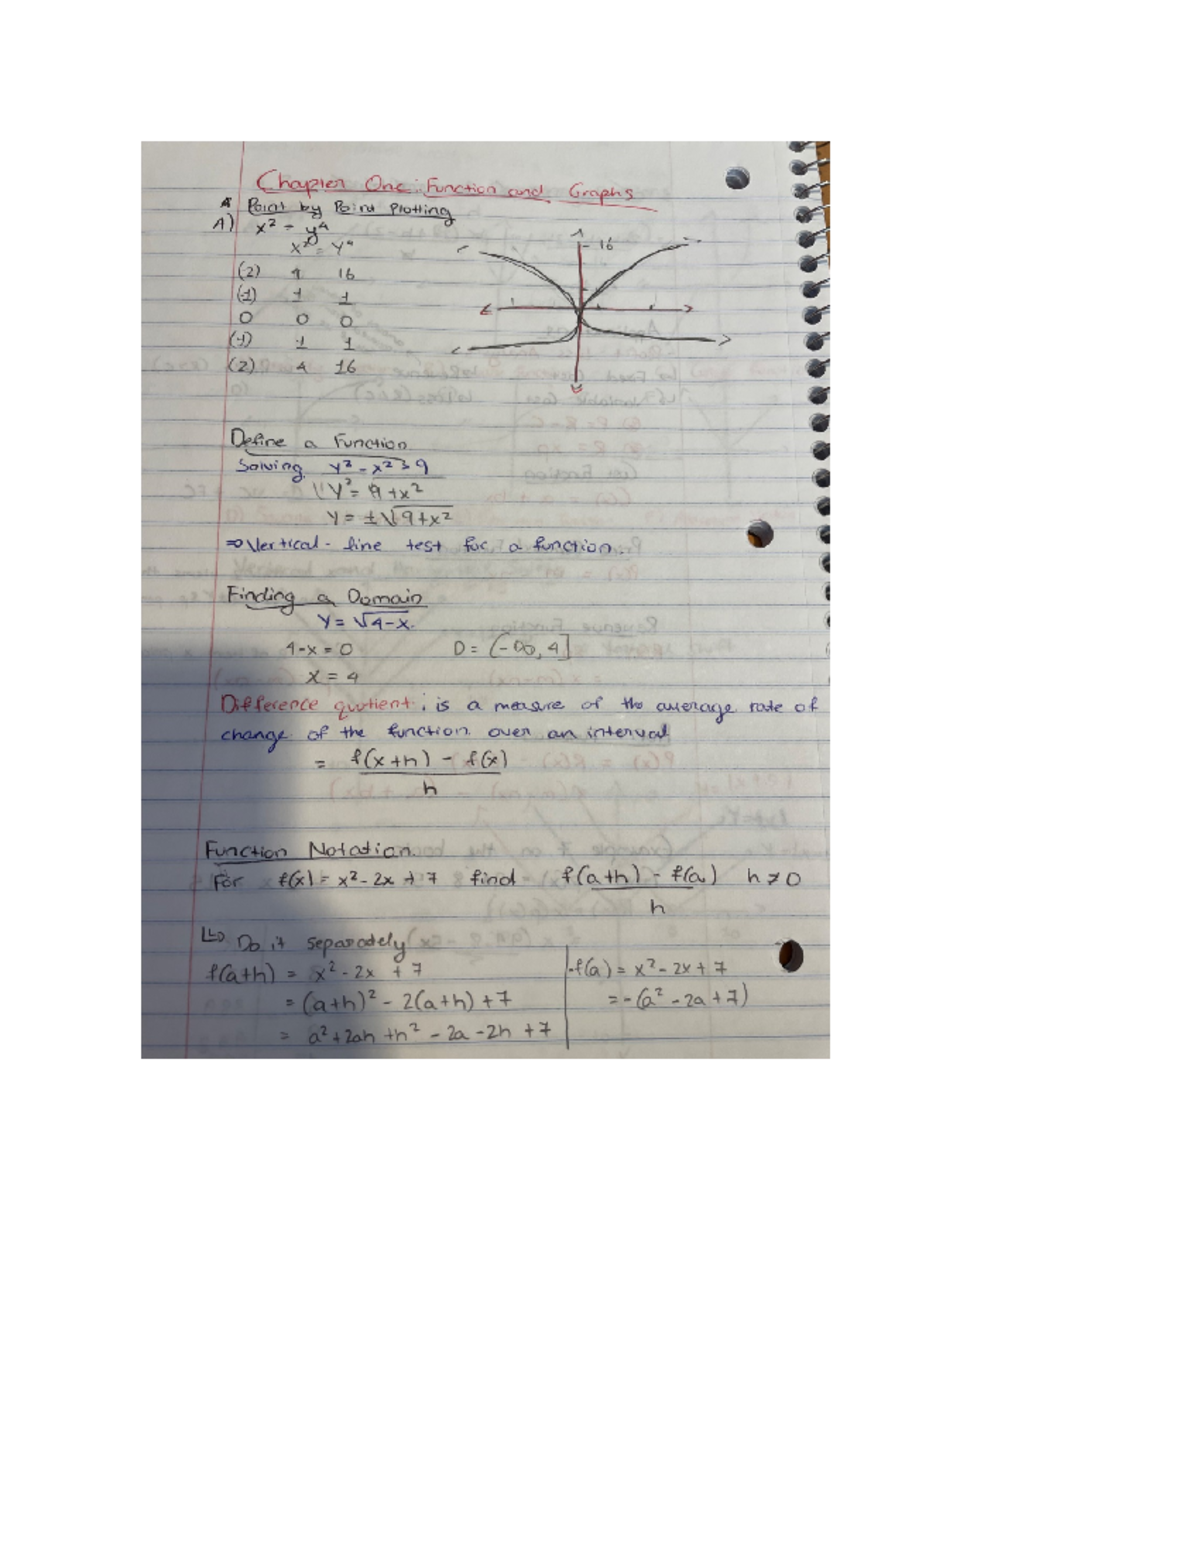 Chapter One: Function and Graphs
* Point by Point Plotting
A) x² = y⁴
x² = y⁴
(2) 4 16
(-1) 1 1
0 0 0
(-1) 1 1
(2) 4 16
16
Define a Function
Solving y² - x² = 9
y² = 9 + x²
y = ±√9+x²
⇒ Vertical - line test for a function.
Finding a Domain
y = √4-x
4-x = 0 D = (-∞, 4]
x = 4
Difference quotient: is a measure of the average rate of
change of the function over an interval
= f(x+h) - f(x)
h
Function Notation.
For f(x) = x² - 2x + 7 find f(a+h) - f(a) h ≠ 0
h
↳ Do it separately
f(a+h) = x² - 2x + 7 -f(a) = x² - 2x + 7
= (a+h)² - 2(a+h) + 7 = -(a² - 2a + 7)
= a² + 2ah + h² - 2a - 2h + 7